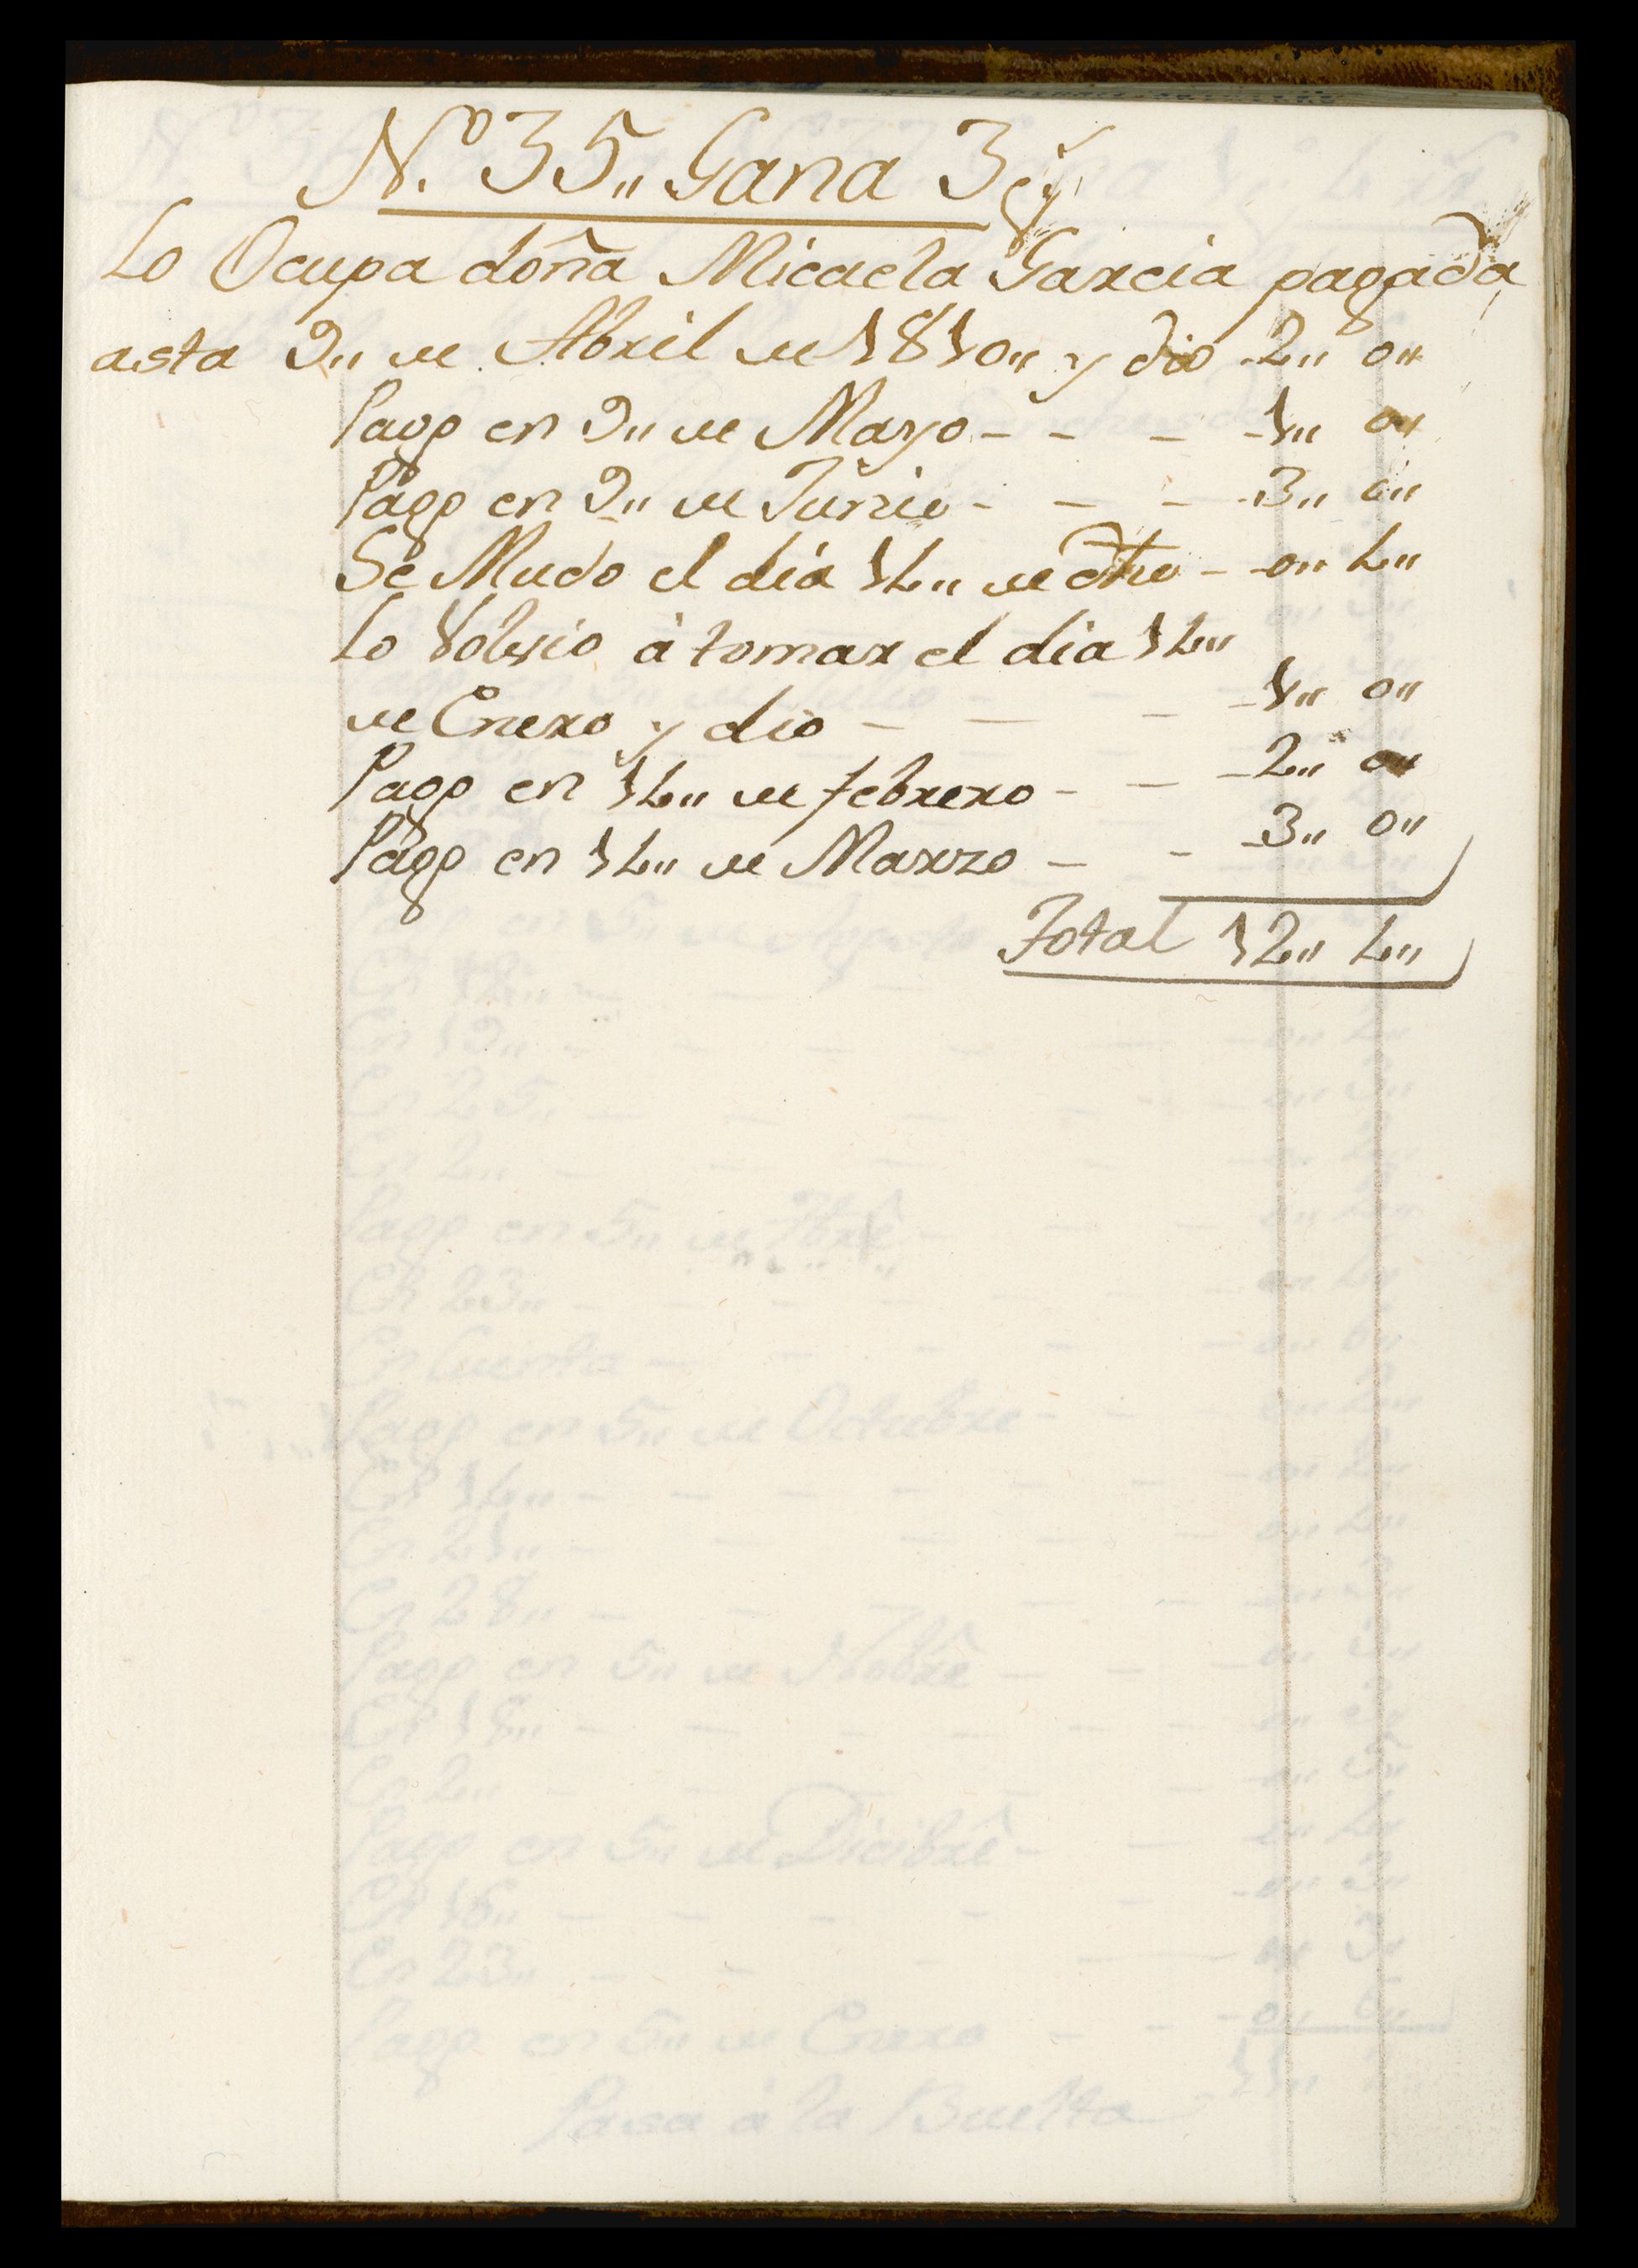 N.º 35,, Gana 3
Lo Ocupa doña Micaela Garcia pagada
asta 9,, de Abril de 1810,, y dio - 2,, 0,,
Pago en 9,, de Mayo - - - - 1,, 0,,
Pago en 9,, de Junio - - - - 3,, 0,,
Se Mudo el dia 14,, de dho - - 0,, 4,,
Lo Volvio à tomar el dia 14,,
de Enero y dio - - - - 1,, 0,,
Pago en 14,, de febrero - - - 2,, 0,,
Pago en 14,, de Marzo - - - 3,, 0,,
Total 12,, 4,,